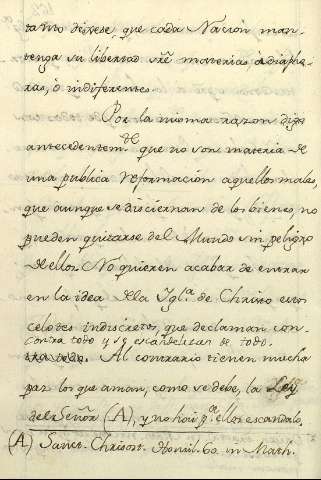 tanto déxese, que cada Nacion man-
tenga su libertad sre. materias adiapho-
ras, ò indiferentes.
Por la misma razon digo
antecedentemte. que no son materia de
una publica reformación aquellos males,
que aunque se disciernan de los bienes, no
pueden quitarse del Mundo sin peligro
de ellos. No quieren acabar de entrar
en la idea de la Ygla. de Christo estos
celotes indiscretos, que declaman con-
contra todo y se escandalizan de todo.
tra todo. Al contrario tienen mucha
paz los que aman, como se debe, la Ley
del Señor (A), y no hai pa. ellos escandalo.
(A) Sanct. Chrisost. Homil. 60. in Math.